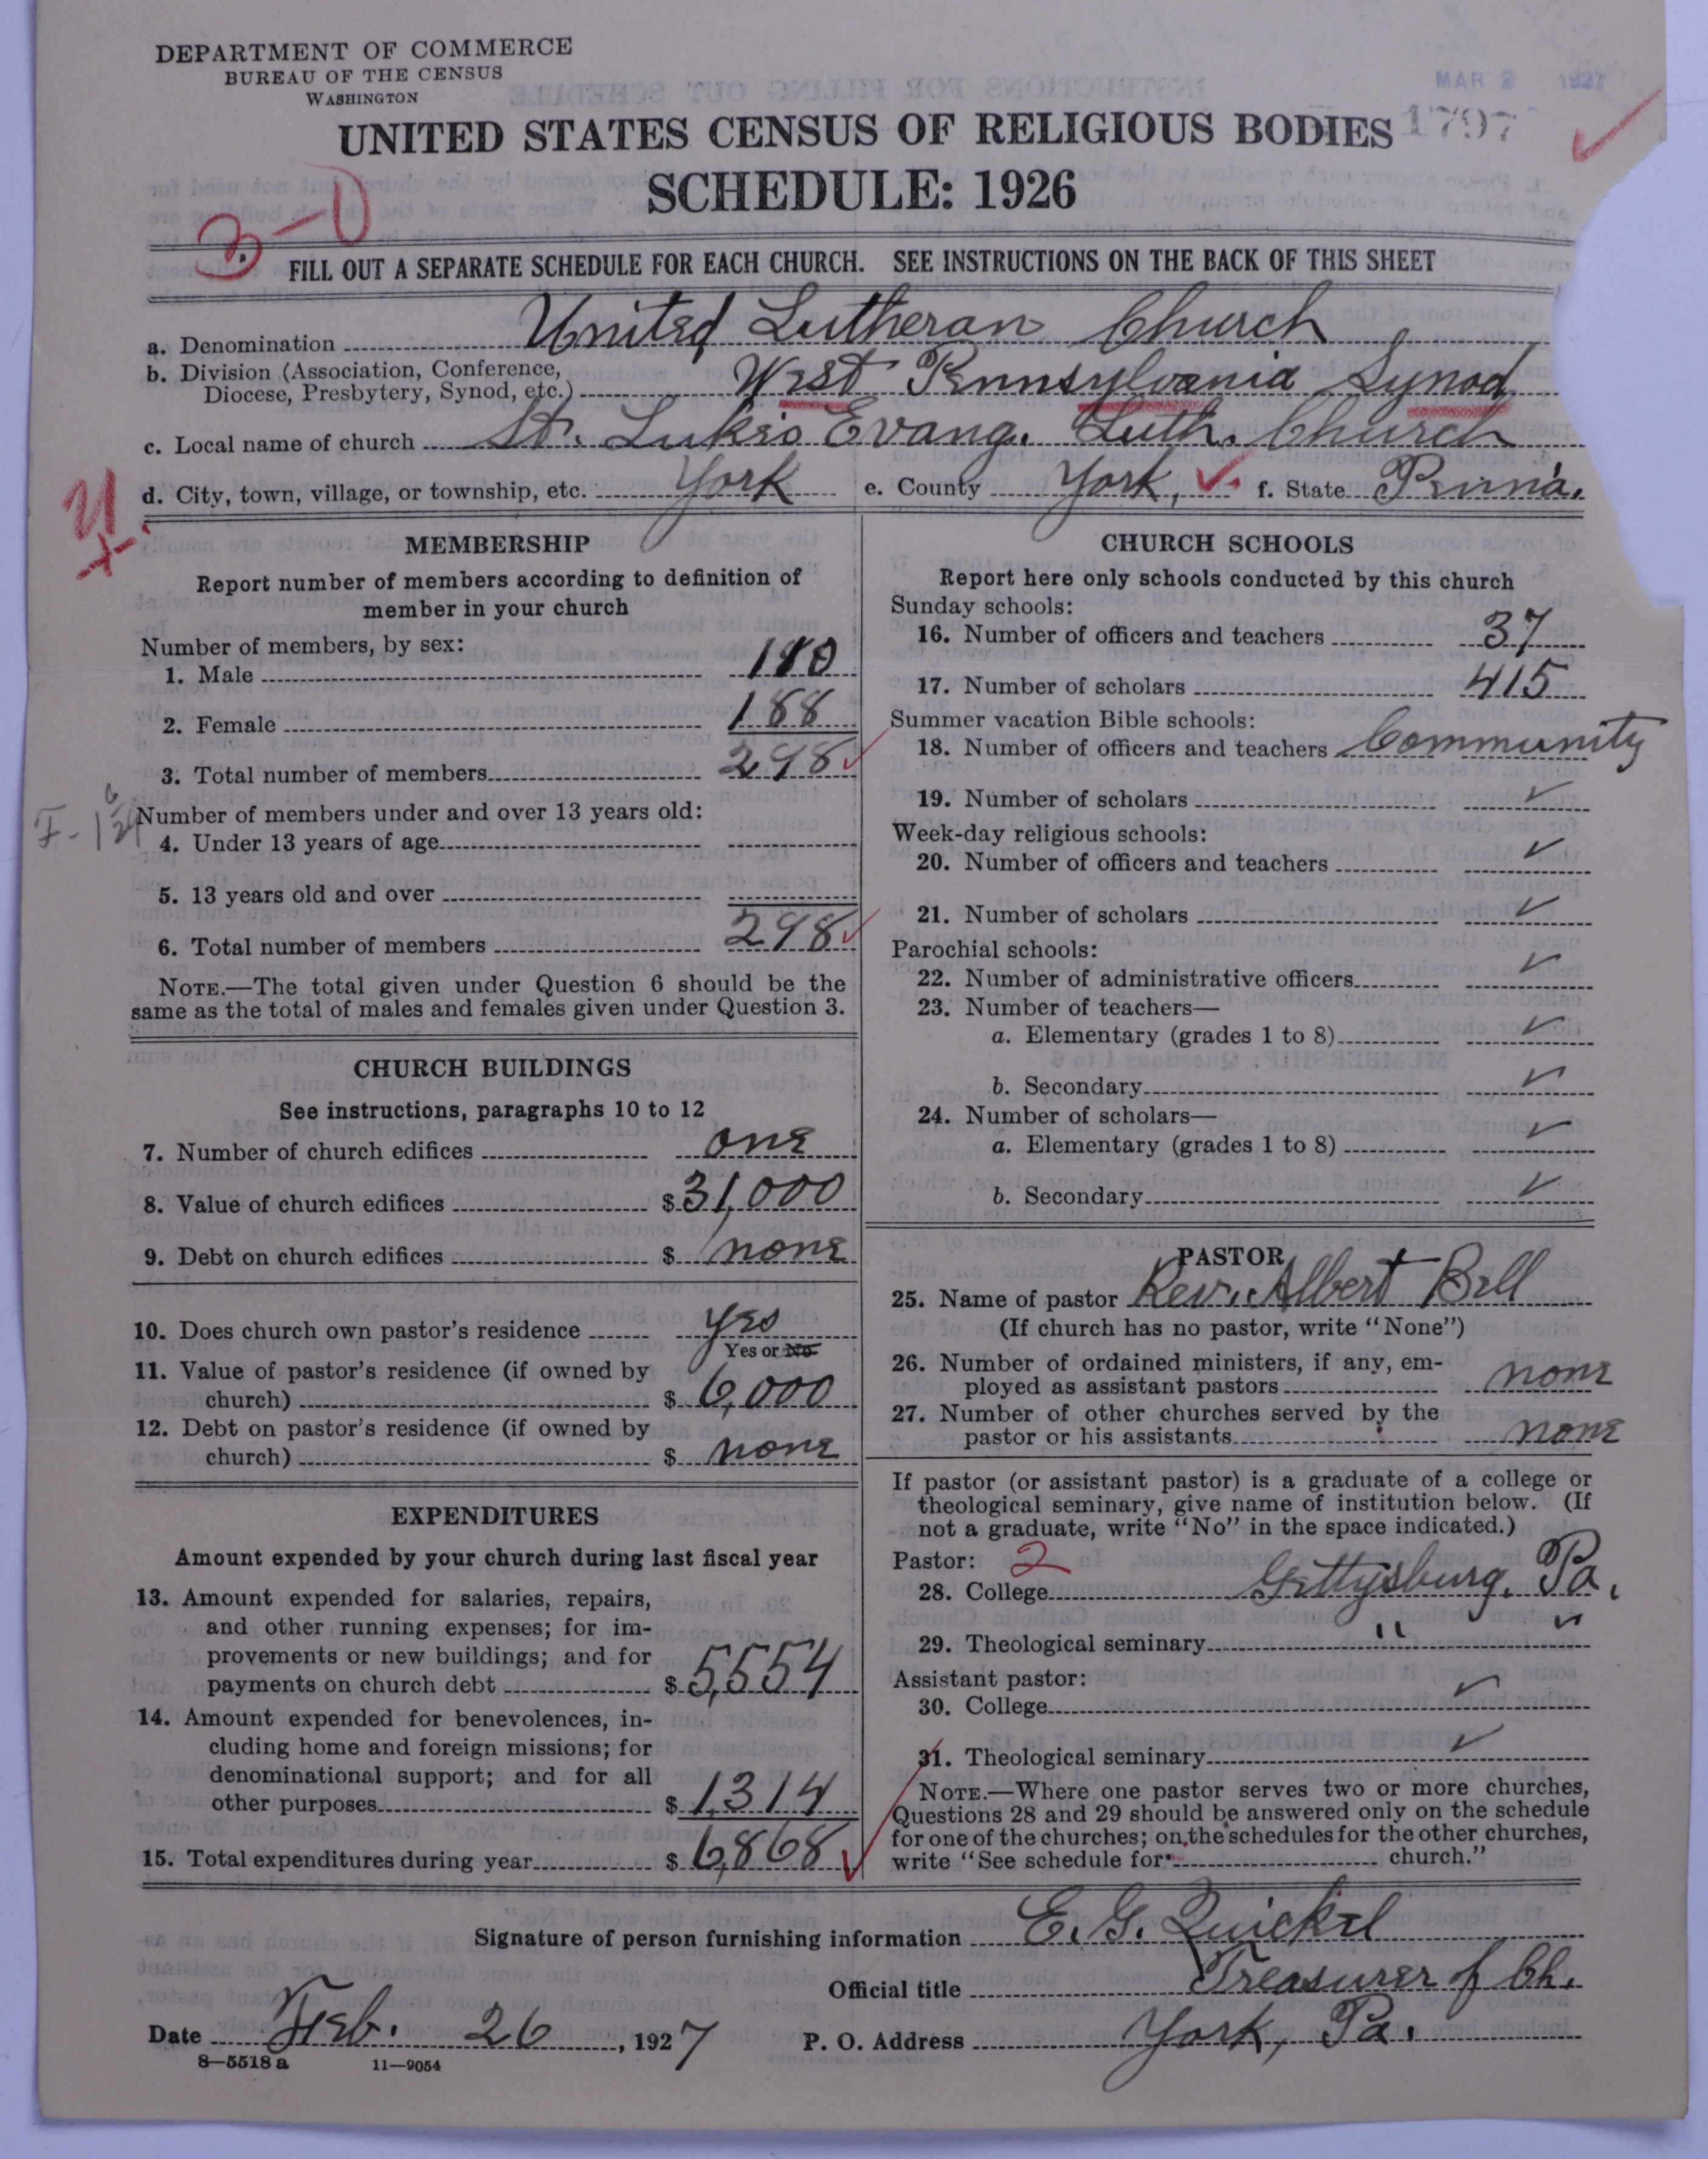 DEPARTMENT OF COMMERCE
BUREAU OF THE CENSUS
WASHINGTON
MAR 2 1927
1797
UNITED STATES CENSUS OF RELIGIOUS BODIES
SCHEDULE: 1926
3-0
FILL OUT A SEPARATE SCHEDULE FOR EACH CHURCH. SEE INSTRUCTIONS ON THE BACK OF THIS SHEET
a. Denomination United Lutheran Church
b. Division (Association, Conference, Diocese, Presbytery, Synod, etc.) West Pennsylvania Synod
c. Local name of church St. Luke's Evang. Luth. Church
d. City, town, village, or township, etc. York e. County York, f. State Penna.
MEMBERSHIP
Report number of members according to definition of
member in your church
Number of members, by sex:
1. Male 110
2. Female 188
3. Total number of members 298
Number of members under and over 13 years old:
4. Under 13 years of age
5. 13 years old and over
6. Total number of members 298
NOTE.—The total given under Question 6 should be the
same as the total of males and females given under Question 3.
CHURCH BUILDINGS
See instructions, paragraphs 10 to 12
7. Number of church edifices one
8. Value of church edifices $ 31,000
9. Debt on church edifices $ none
10. Does church own pastor's residence yes
Yes or No
11. Value of pastor's residence (if owned by
church) $ 6,000
12. Debt on pastor's residence (if owned by
church) $ none
EXPENDITURES
Amount expended by your church during last fiscal year
13. Amount expended for salaries, repairs,
and other running expenses; for im-
provements or new buildings; and for
payments on church debt $ 5,554
14. Amount expended for benevolences, in-
cluding home and foreign missions; for
denominational support; and for all
other purposes $ 1,314
15. Total expenditures during year $ 6,868
CHURCH SCHOOLS
Report here only schools conducted by this church
Sunday schools:
16. Number of officers and teachers 37
17. Number of scholars 415
Summer vacation Bible schools:
18. Number of officers and teachers Community
19. Number of scholars ✓
Week-day religious schools:
20. Number of officers and teachers ✓
21. Number of scholars ✓
Parochial schools:
22. Number of administrative officers ✓
23. Number of teachers—
a. Elementary (grades 1 to 8) ✓
b. Secondary ✓
24. Number of scholars—
a. Elementary (grades 1 to 8) ✓
b. Secondary ✓
PASTOR
25. Name of pastor Rev. Albert Bell
(If church has no pastor, write "None")
26. Number of ordained ministers, if any, em-
ployed as assistant pastors none
27. Number of other churches served by the
pastor or his assistants none
If pastor (or assistant pastor) is a graduate of a college or
theological seminary, give name of institution below. (If
not a graduate, write "No" in the space indicated.)
Pastor: 2
28. College Gettysburg, Pa.
29. Theological seminary " "
Assistant pastor:
30. College ✓
31. Theological seminary ✓
NOTE.—Where one pastor serves two or more churches,
Questions 28 and 29 should be answered only on the schedule
for one of the churches; on the schedules for the other churches,
write "See schedule for church."
Signature of person furnishing information E. G. Quickel
Official title Treasurer of Ch.
Date Feb. 26, 1927 P. O. Address York, Pa.
8—5518 a 11—9054